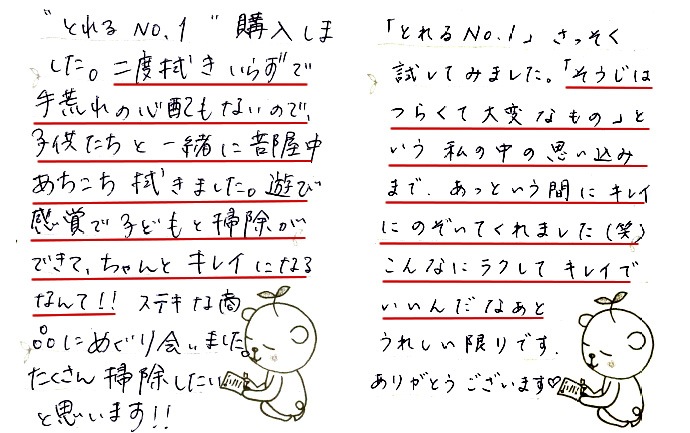 "とれるNO.1"購入しま
した。二度拭きいらずで
手荒れの心配もないので、
子供たちと一緒に部屋中
あちこち拭きました。遊び
感覚で子どもと掃除が
できて、ちゃんとキレイになる
なんて!! ステキな商
品にめぐり会いました。
たくさん掃除したい
と思います!!
「とれるNO.1」さっそく
試してみました。「そうじは
つらくて大変なもの」と
いう私の中の思い込み
まで、あっという間にキレイ
にのぞいてくれました(笑)
こんなにラクしてキレイで
いいんだなぁと
うれしい限りです.
ありがとうございます♡